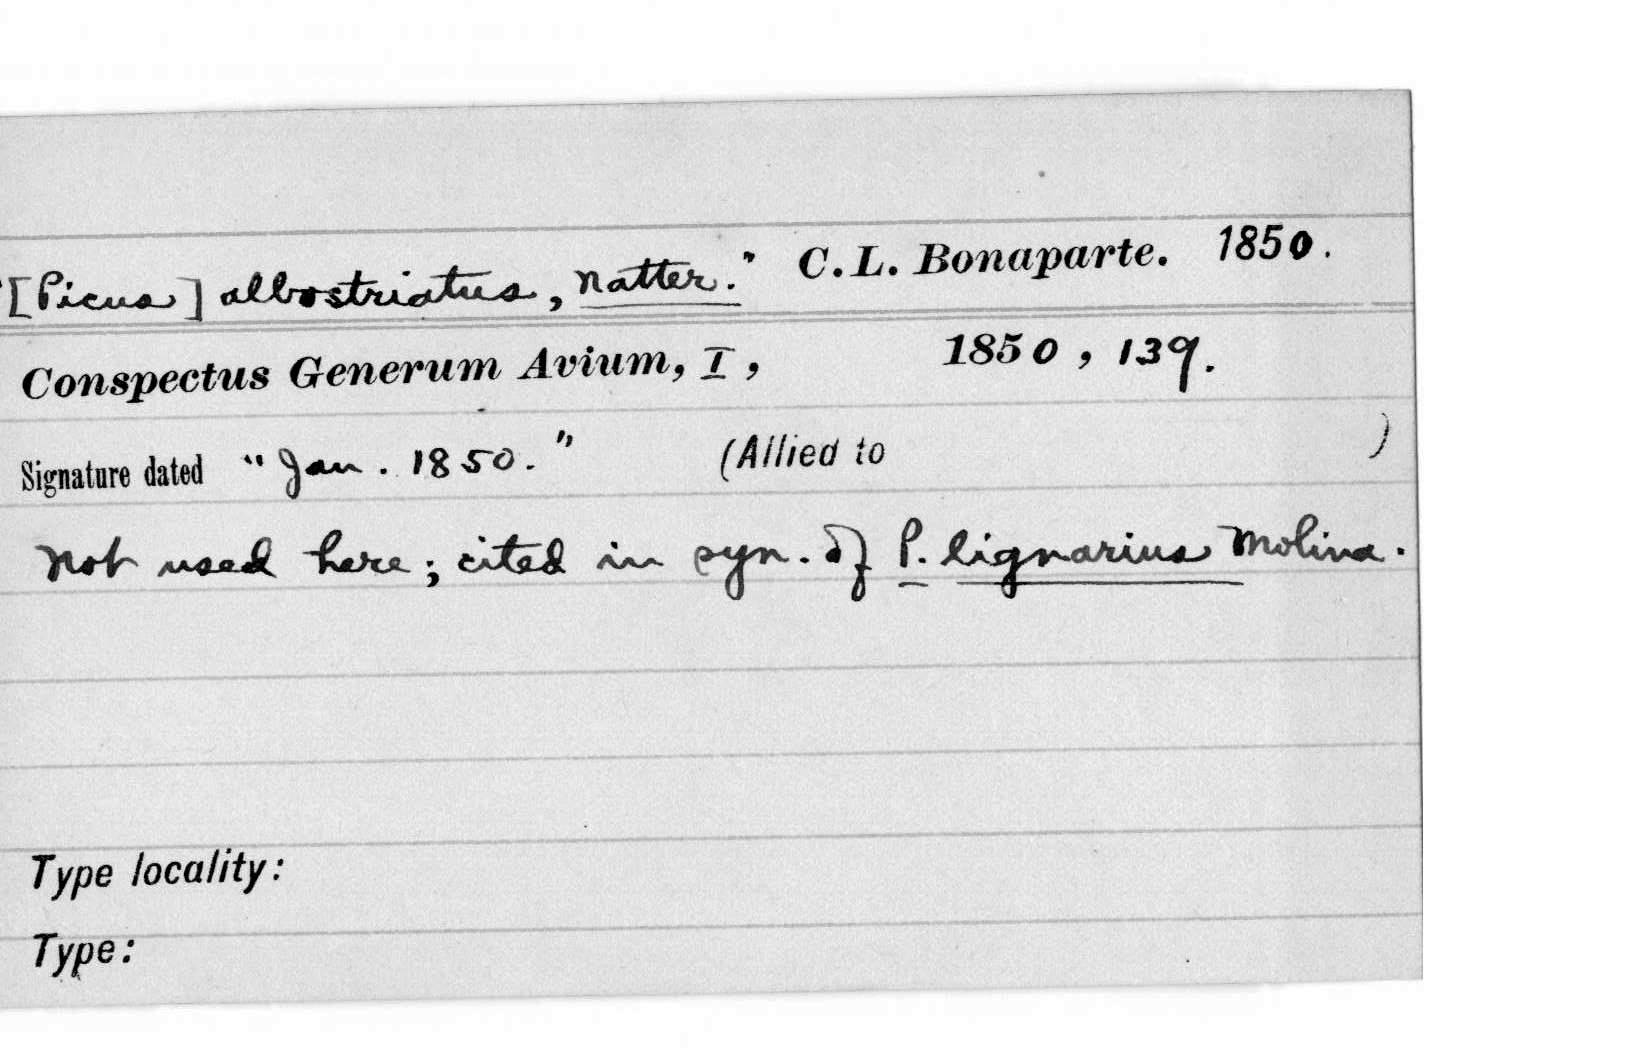 "[Picus] albostriatus, Natter." C. L. Bonaparte. 1850.
Conspectus Generum Avium, I, 1850, 139.
Signature dated "Jan. 1850." (Allied to )
Not used here; cited in syn. of P. lignarius Molina.
Type locality:
Type: